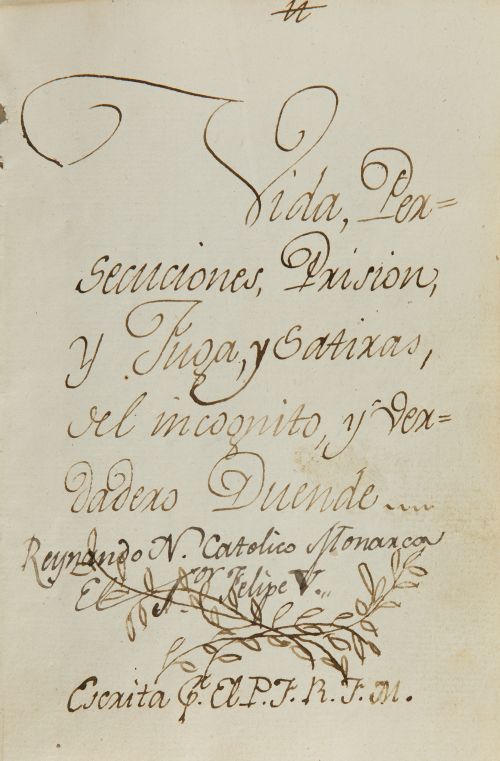 Vida, Per=
secuciones, Prision,
y Fuga, y Satiras,
del incognito, y ver=
dadero Duende....
Reynando N. Catolico Monarca
El Sr. Dn. Felipe V...
Escrita Pr. El P. F. R. F. M.